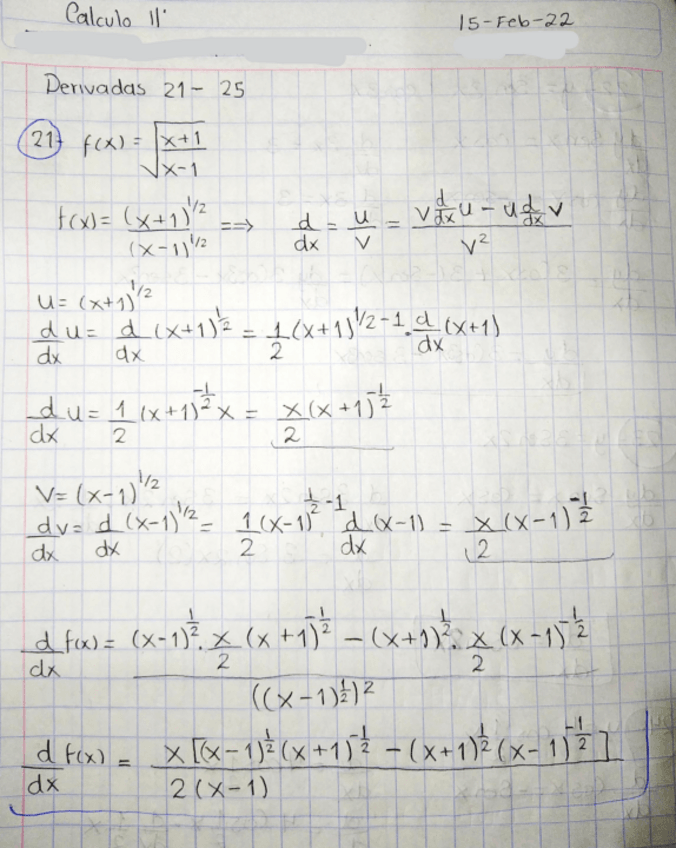 Calculo II'
15-Feb-22
Derivadas 21- 25
21- f(x) = √((x+1)/(x-1))
f(x) = (x+1)^1/2 / (x-1)^1/2 ==> d/dx = u/v = (v d/dx u - u d/dx v) / v²
u = (x+1)^1/2
d/dx u = d/dx (x+1)^1/2 = 1/2 (x+1)^1/2-1 . d/dx (x+1)
d/dx u = 1/2 (x+1)^-1/2 x = x/2 (x+1)^-1/2
v = (x-1)^1/2
dv/dx = d/dx (x-1)^1/2 = 1/2 (x-1)^1/2-1 d/dx (x-1) = x/2 (x-1)^-1/2
d/dx f(x) = ((x-1)^1/2 . x/2 (x+1)^-1/2 - (x+1)^1/2 . x/2 (x-1)^-1/2) / ((x-1)^1/2)²
d/dx f(x) = x[(x-1)^1/2 (x+1)^-1/2 - (x+1)^1/2 (x-1)^-1/2] / 2(x-1)